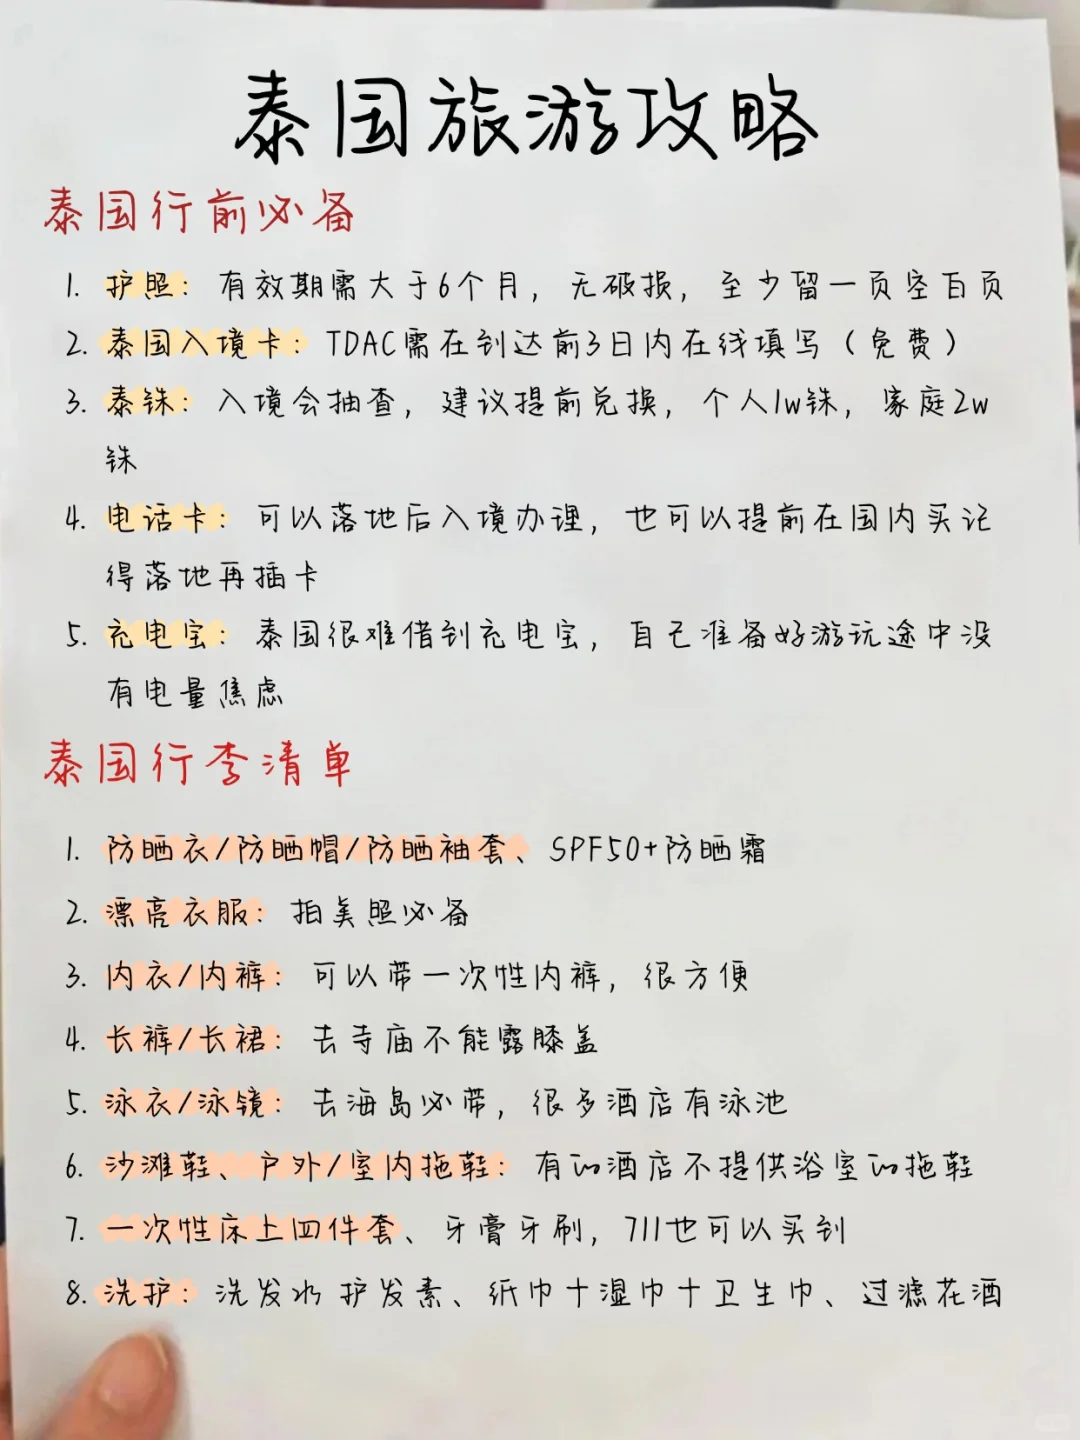 泰国旅游攻略
泰国行前必备
1. 护照：有效期需大于6个月，无破损，至少留一页空白页
2. 泰国入境卡：TDAC需在到达前3日内在线填写（免费）
3. 泰铢：入境会抽查，建议提前兑换，个人1w铢，家庭2w
铢
4. 电话卡：可以落地后入境办理，也可以提前在国内买记
得落地再插卡
5. 充电宝：泰国很难借到充电宝，自己准备好游玩途中没
有电量焦虑
泰国行李清单
1. 防晒衣/防晒帽/防晒袖套、SPF50+防晒霜
2. 漂亮衣服：拍美照必备
3. 内衣/内裤：可以带一次性内裤，很方便
4. 长裤/长裙：去寺庙不能露膝盖
5. 泳衣/泳镜：去海岛必带，很多酒店有泳池
6. 沙滩鞋、户外/室内拖鞋：有的酒店不提供浴室的拖鞋
7. 一次性床上四件套、牙膏牙刷，711也可以买到
8. 洗护：洗发水 护发素、纸巾+湿巾+卫生巾、过滤花洒